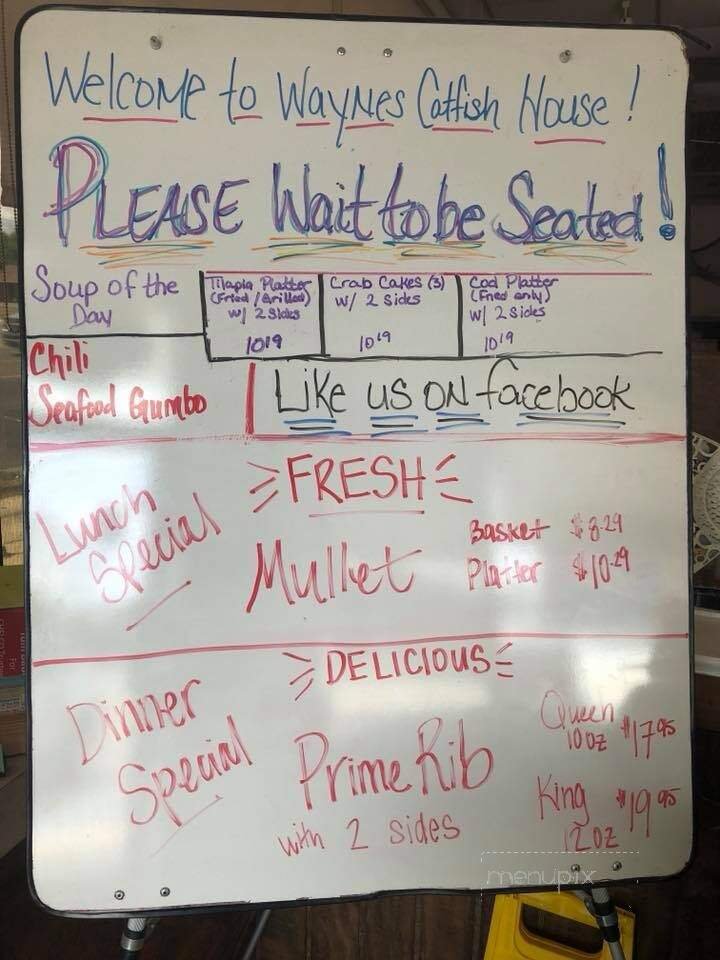 Welcome to Waynes Catfish House!
PLEASE Wait to be Seated!
Soup of the
Day
Chili
Seafood Gumbo
Tilapia Platter
(Fried/Grilled)
w/ 2 sides
10¹⁹
Crab Cakes (3)
w/ 2 sides
10¹⁹
Cod Platter
(Fried only)
w/ 2 sides
10¹⁹
Like us on facebook
Lunch
Special
FRESH
Mullet
Basket $8.29
Platter $10.29
Dinner
Special
DELICIOUS
Prime Rib
with 2 sides
Queen
10oz $17⁹⁵
King
12oz $19⁹⁵
menupix